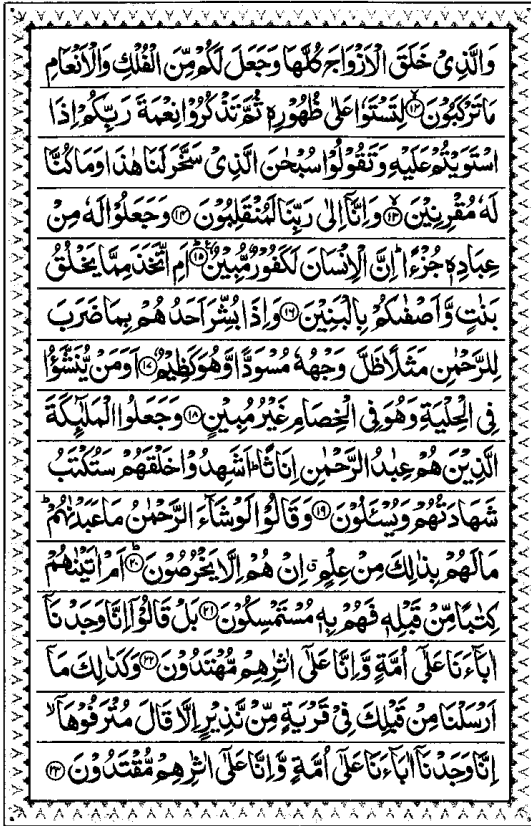 وَالَّذِیْ خَلَقَ الْاَزْوَاجَ كُلَّهَا وَجَعَلَ لَكُمْ مِّنَ الْفُلْكِ وَالْاَنْعَامِ
مَا تَرْكَبُوْنَ ۙ﴿۱۲﴾ لِتَسْتَوٗا عَلٰی ظُهُوْرِهٖ ثُمَّ تَذْكُرُوْا نِعْمَةَ رَبِّكُمْ اِذَا
اسْتَوَیْتُمْ عَلَیْهِ وَتَقُوْلُوْا سُبْحٰنَ الَّذِیْ سَخَّرَ لَنَا هٰذَا وَمَا كُنَّا
لَهٗ مُقْرِنِیْنَ ۙ﴿۱۳﴾ وَاِنَّاۤ اِلٰی رَبِّنَا لَمُنْقَلِبُوْنَ ﴿۱۴﴾ وَجَعَلُوْا لَهٗ مِنْ
عِبَادِهٖ جُزْءًا ؕ اِنَّ الْاِنْسَانَ لَكَفُوْرٌ مُّبِیْنٌ ؕ﴿۱۵﴾ اَمِ اتَّخَذَ مِمَّا یَخْلُقُ
بَنٰتٍ وَّاَصْفٰىكُمْ بِالْبَنِیْنَ ﴿۱۶﴾ وَاِذَا بُشِّرَ اَحَدُهُمْ بِمَا ضَرَبَ
لِلرَّحْمٰنِ مَثَلًا ظَلَّ وَجْهُهٗ مُسْوَدًّا وَّهُوَ كَظِیْمٌ ﴿۱۷﴾ اَوَمَنْ یُّنَشَّؤُا
فِی الْحِلْیَةِ وَهُوَ فِی الْخِصَامِ غَیْرُ مُبِیْنٍ ﴿۱۸﴾ وَجَعَلُوا الْمَلٰٓىِٕكَةَ
الَّذِیْنَ هُمْ عِبٰدُ الرَّحْمٰنِ اِنَاثًا ؕ اَشَهِدُوْا خَلْقَهُمْ ؕ سَتُكْتَبُ
شَهَادَتُهُمْ وَیُسْـَٔلُوْنَ ﴿۱۹﴾ وَقَالُوْا لَوْ شَآءَ الرَّحْمٰنُ مَا عَبَدْنٰهُمْ ؕ
مَا لَهُمْ بِذٰلِكَ مِنْ عِلْمٍ ۗ اِنْ هُمْ اِلَّا یَخْرُصُوْنَ ؕ﴿۲۰﴾ اَمْ اٰتَیْنٰهُمْ
كِتٰبًا مِّنْ قَبْلِهٖ فَهُمْ بِهٖ مُسْتَمْسِكُوْنَ ﴿۲۱﴾ بَلْ قَالُوْۤا اِنَّا وَجَدْنَاۤ
اٰبَآءَنَا عَلٰۤی اُمَّةٍ وَّاِنَّا عَلٰۤی اٰثٰرِهِمْ مُّهْتَدُوْنَ ﴿۲۲﴾ وَكَذٰلِكَ مَاۤ
اَرْسَلْنَا مِنْ قَبْلِكَ فِیْ قَرْیَةٍ مِّنْ نَّذِیْرٍ اِلَّا قَالَ مُتْرَفُوْهَاۤ ۙ
اِنَّا وَجَدْنَاۤ اٰبَآءَنَا عَلٰۤی اُمَّةٍ وَّاِنَّا عَلٰۤی اٰثٰرِهِمْ مُّقْتَدُوْنَ ﴿۲۳﴾